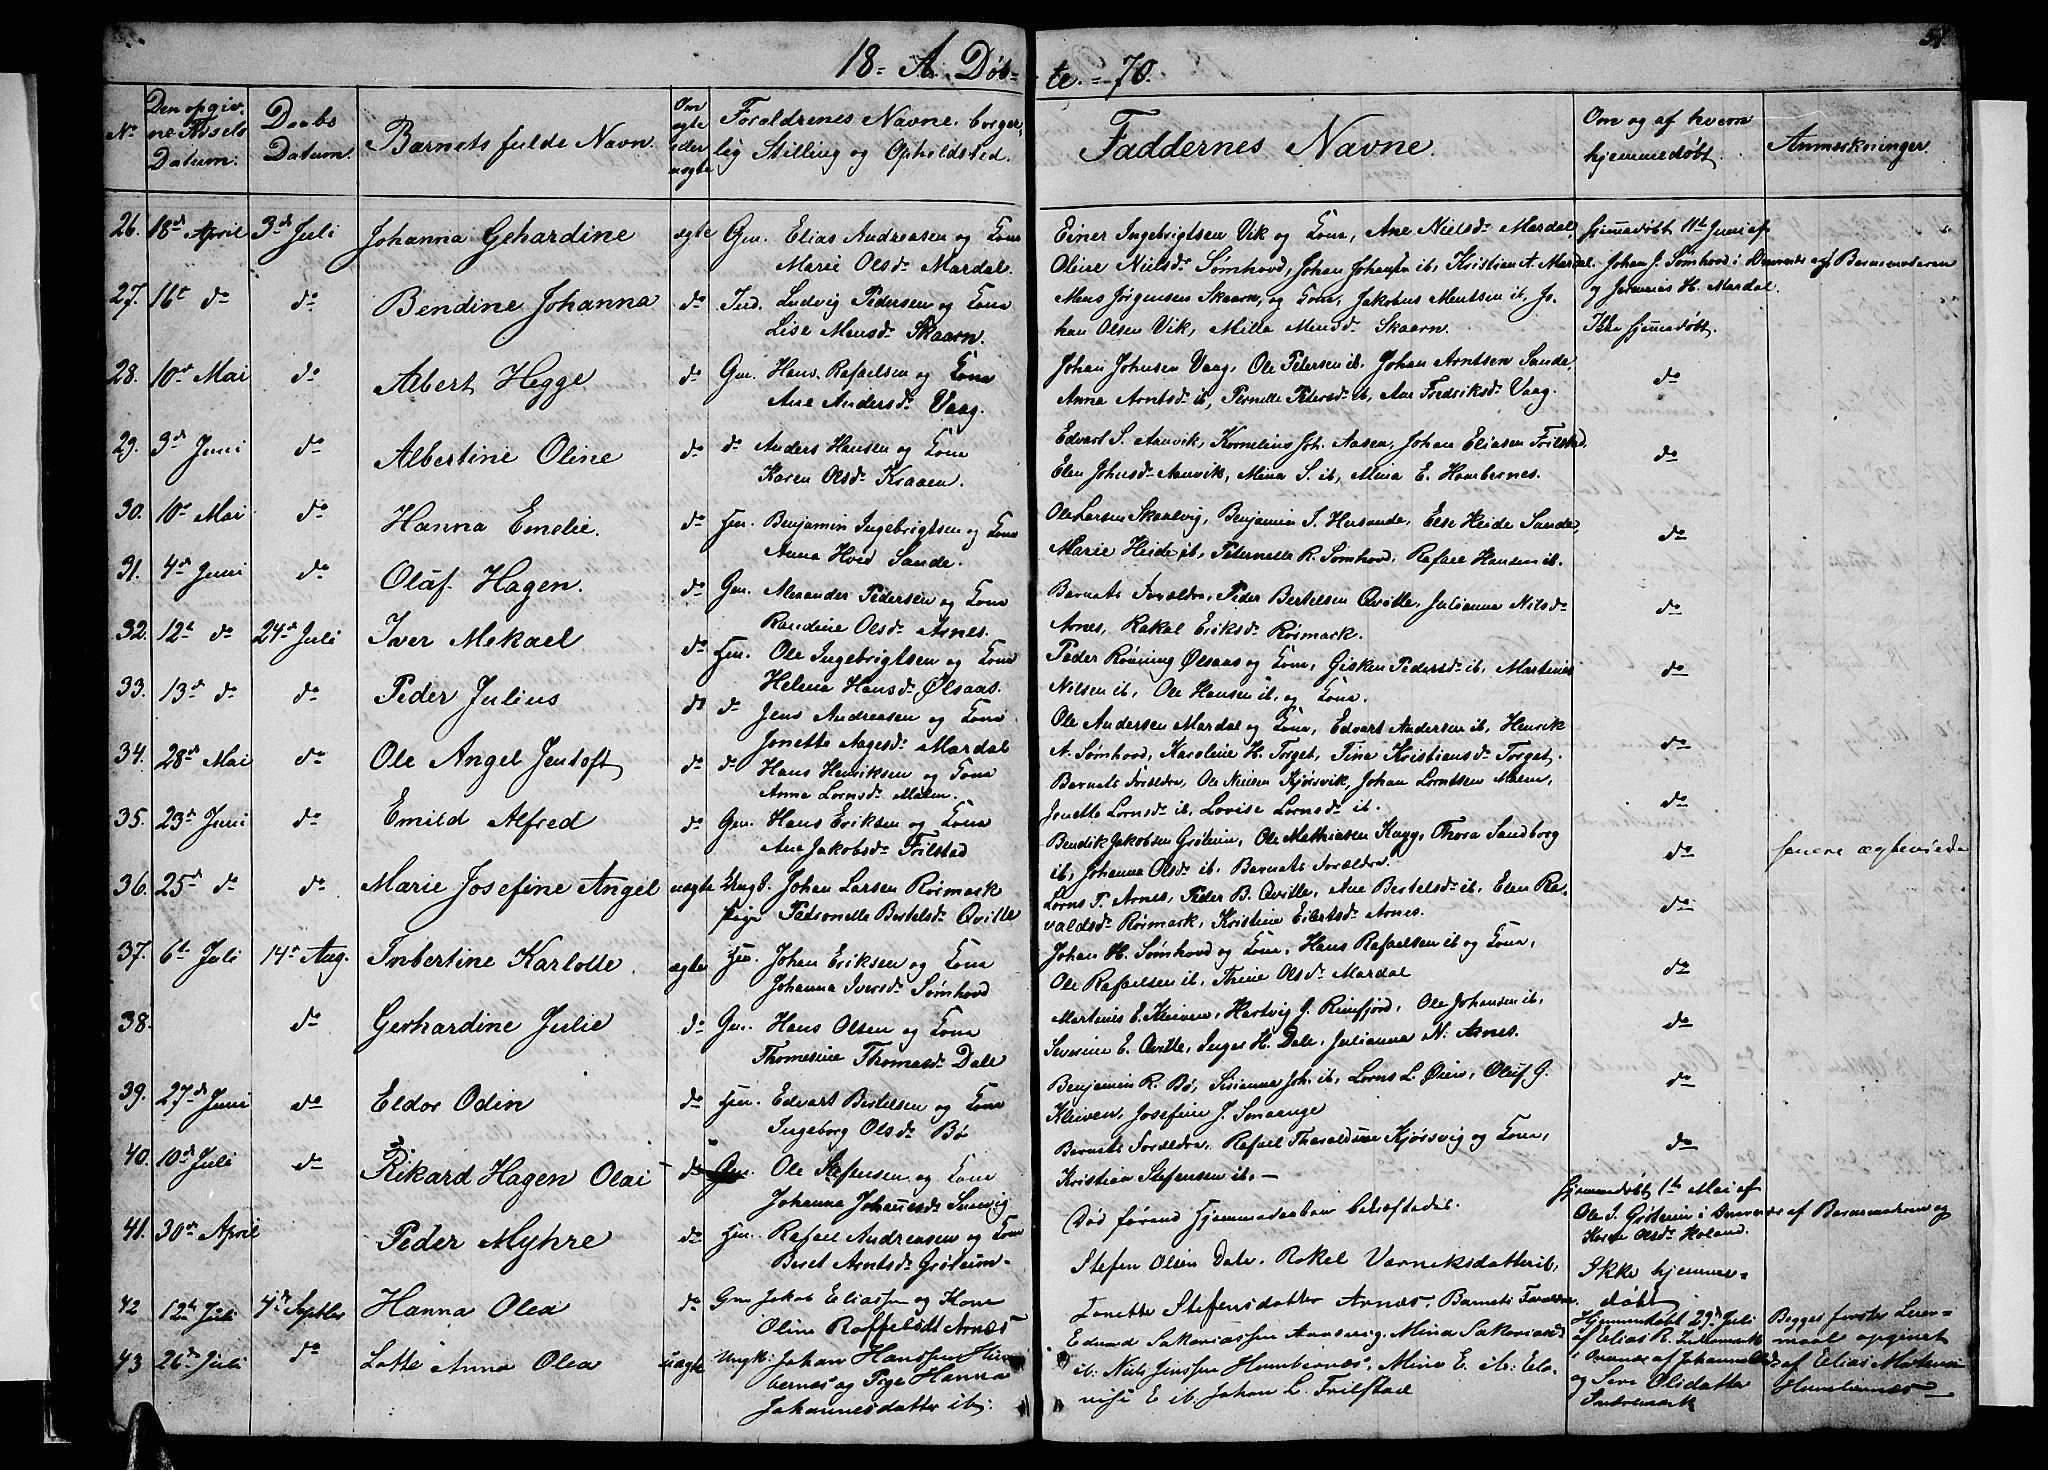 18 - A. Døb-
te. - 70.
51
No
Den opgiv-
ne Fødsels
Datum.
Daabs
Datum.
Barnets fulde Navn.
Om
ægte
eller
uægte
Forældrenes Navne, borger-
lig Stilling og Opholdssted.
Faddernes Navne.
Om og af hvem
hjemmedøbt.
Anmærkninger.
26. 18de April 3de Juli Johanna Gehardine ægte Gm. Elias Andreasen og Kone
Marie Olsdr Mardal.
Einer Ingebrigtsen Vik og Kone, Ane Nielsdr Mardal,
Oline Nielsdr Sømhovd, Johan Johansen ib, Kristian A. Mardal.
hjemmedøbt 11te Juni af
Johan J. Sømhovd i Overvær af Barnemoderen
og Johannes H. Mardal.
27. 16t do do Bendine Johanna do Ind. Ludvig Pedersen og Kone
Lise Monsdr Skaarn.
Mons Jørgensen Skaarn, og Kone, Jakobus Mentsen ib, Jo-
han Olsen Vik, Milla Monsdr Skaarn.
Ikke hjemmedøbt.
28. 10de Mai do Albert Hegge do Gm. Hans Rafaelsen og Kone
Ane Andersdr Vaag.
Johan Johnsen Vaag, Ole Petersen ib, Johan Arntsen Sande,
Anna Arntsdr ib, Pernelle Petersdr ib, Ane Fredriksdr Vaag.
do
29. 3de Juni do Albertine Oline do do Anders Hansen og Kone
Karen Olsdr Kraaen.
Edvart S. Aarvik, Kornelius Joh. Aasen, Johan Eliasen Frilstad,
Elen Johnsdr Aarvik, Mina S. ib, Mina E. Humbernes.
do
30. 10de Mai do Hanna Emelie. do Hm. Benjamin Ingebrigtsen og Kone
Anna Hveid Sande.
Ole Larsen Skaalvig, Benjamin I. Husande, Else Heide Sande,
Marie Heide ib, Peternelle R. Sømhovd, Rafael Hansen ib.
do
31. 4de Juni do Oluf Hagen. do Gm. Alexander Pedersen og Kone
Randine Olsdr Arnes.
Barnets Forældre, Peder Bertelsen Qville, Julianna Nilsdr
Arnes, Rakal Eriksdr Rørmark.
do
32. 12te do 24de Juli Iver Mekael do Hm. Ole Ingebrigtsen og Kone
Helena Hansdr Ølsaas.
Peder Rønning Ølsaas og Kone, Gisken Pedersdr ib, Martinus
Nilsen ib, Ole Hansen ib, og Kone.
do
33. 13de do do Peder Julius do do Jens Andreasen og Kone
Jonette Aagesdr Mardal
Ole Andersen Mardal og Kone, Edvart Andersen ib, Henrik
A. Sømhovd, Karoline H. Torget, Tina Kristiansdr Torget.
do
34. 28de Mai do Ole Angel Jentoft do do Hans Henriksen og Kone
Anna Lornsdr Malm.
Barnets Forældre, Ole Nielsen Kjørsvik, Johan Lorntsen Malm,
Jonette Lornsdr ib, Lovise Lornsdr ib.
do
35. 23de Juni do Emild Alfred do Gm. Hans Eriksen og Kone
Ane Jakobsdr Frilstad
Bendik Jakobsen Grøteim, Ole Mathiasen Kagg, Thora Sandborg
ib, Johanna Olsdr ib, Barnets Forældre.
do
36. 25de do do Marie Josefine Angel uægte Ungk. Johan Larsen Rørmark
Pige Petronelle Bertelsdr Qville
Lorns P. Arnes, Peder B. Qville, Ane Bertelsdr ib, Elen Ra-
valdsdr Rørmark, Kristine Eilertsdr Arnes.
do
senere ægteviede
37. 6te Juli 14de Aug. Inbertine Karlotte. ægte Hm. Johan Eriksen og Kone
Johanna Iversdr Sømhovd
Johan H. Sømhovd og Kone, Hans Rafaelsen ib og Kone,
Ole Rafaelsen ib, Trine Olsdr Mardal
do
38. do Gerhardine Julie do Gm. Hans Olsen og Kone
Thomesine Thomasdr Dale
Martinus E. Kleiven, Hartvig G. Rimfjord, Ole Johansen ib,
Severine E. Qville, Inger H. Dale, Julianna N. Arnes.
do
39. 27de Juni do Eldor Odin do Hm. Edvart Bertelsen og Kone
Ingeborg Olsdr Bø
Benjamin R. Bø, Sisianna Joh. ib, Lorns L. Øien, Oluf G.
Kleiven, Josefine J. Smaange
do
40. 10de Juli do Rikard Hagen Olai do Gm. Ole Stefensen og Kone
Johanna Johannesdr
Barnets Forældre, Rafael Tharaldsen Kjørsvig og Kone,
Kristian Stefensen ib. -
do
41. 30te April Peder Myhre do Hm. Rafael Andreasen og Kone
Beret Arntsdr Grøteim-
Død førend Hjemmedaaben bekræftedes.
hjemmedøbt 1te Mai af
Ole I. Grøteim i Overvær af Barnemoderen og
Karen Olsdr Holand.
42 12te Juli 4de Septbr Hanna Olea do Gm Jakob Eliassen og Kone
Oline Raffelsdt Arnes
Stefen Olsen Dale, Rakel Varniksdatter ib,
Lonette Stefensdatter Arnæs. Barnets Forældre.
Ikke hjemme-
døbt
43 26de Juli do Lotte Anna Olea uægte Ungk: Johan Hanssen Hum-
bernes og Pige Hanna
Johannesdatter ib:
Edvard Sakariassen Aarsvig, Mina Sakariasd
ib: Niels Jenssen Humbernæs, Mine E. ib: Elo-
nise E ib. Johan L. Frilstad
Hjemmedøbt 29de Juli
af Elias R. Indremark
i Overvær af Johannes
og Sere Olsdatter
Indremark
Begges første Leier-
maal opgivet
af Elias Mortensen
Humbernæs